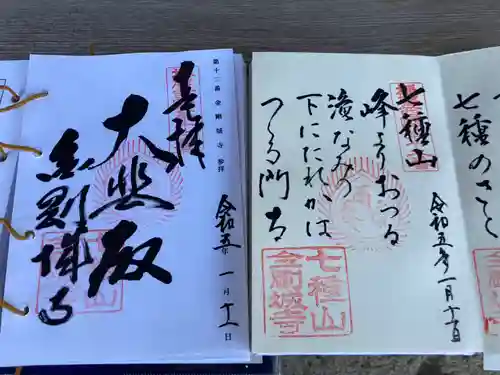 第十二番 金剛城寺 参拝
奉拝
大悲殿
金剛城寺
令和五年 一月十一日
七種山
峰よりおつる
滝なみの
下にたれかは
つる門寺
令和五年一月十一日
七種山
金剛城寺
七種の